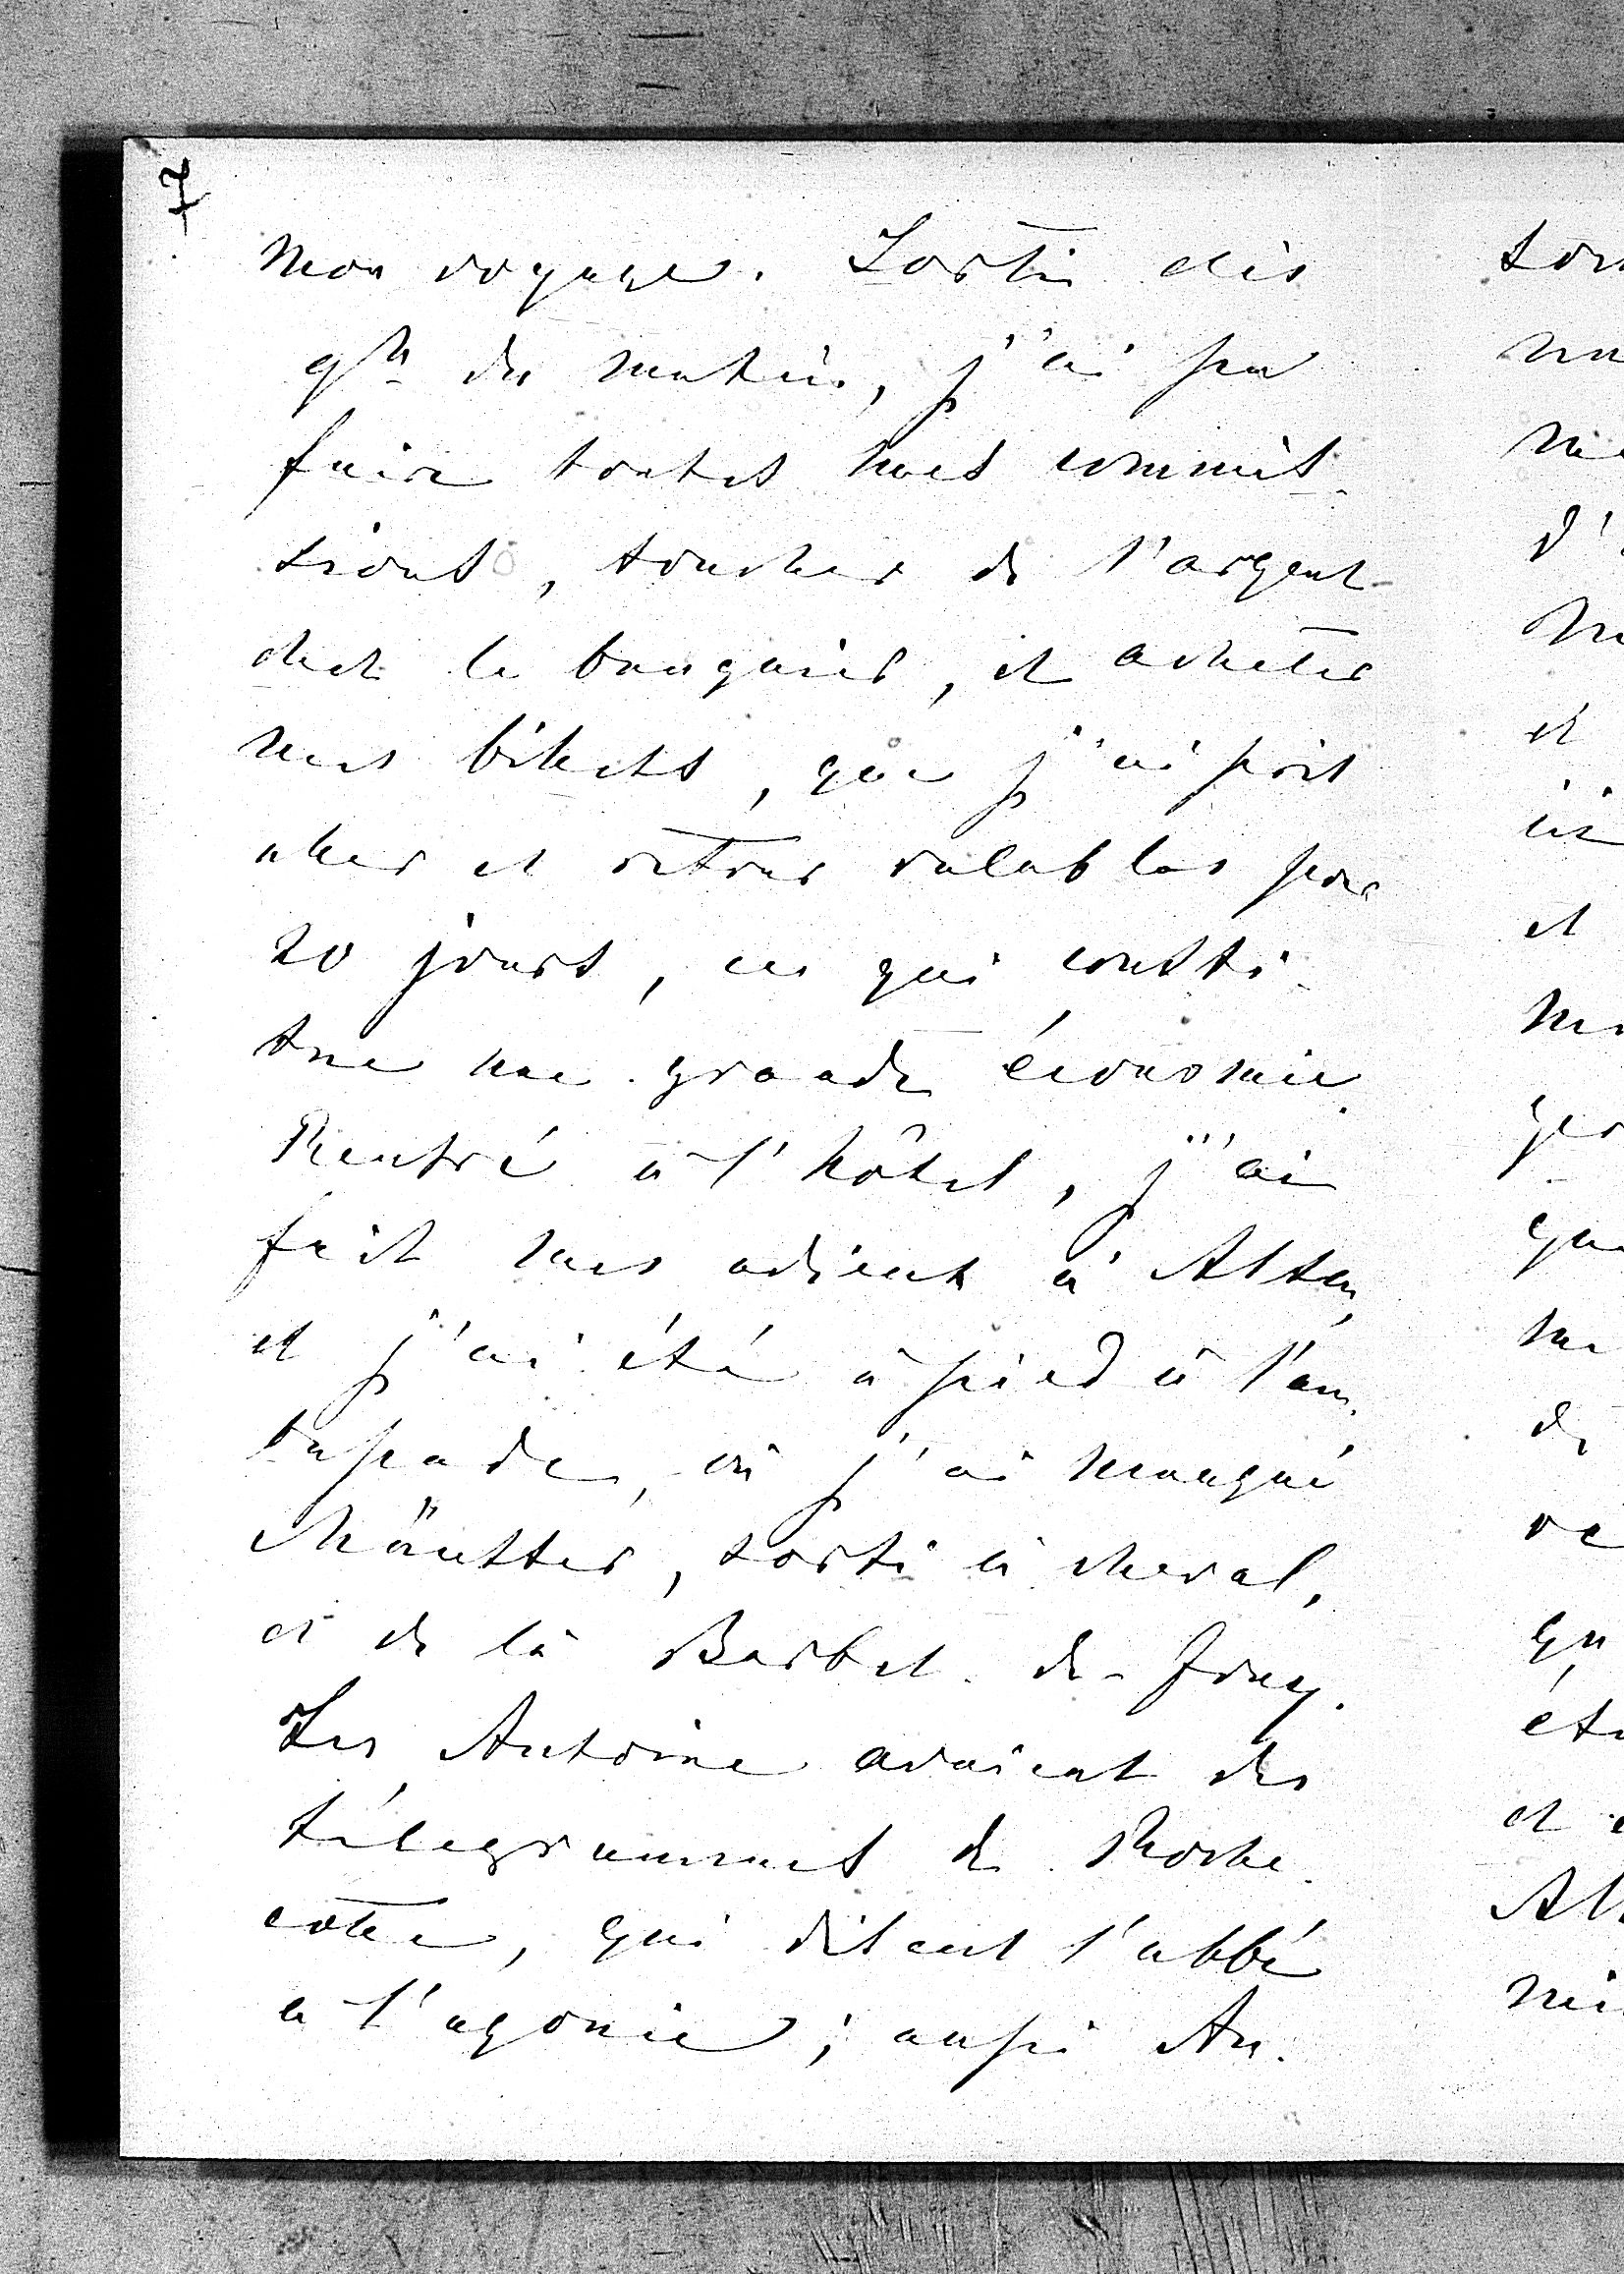 7
mon voyage. Sorti dès
9h du matin, j'ai pu
faire toutes mes commis-
sions, toucher de l'argent
chez le banquier, et acheter
mes billets, que j'ai pris
aller et retour valables pour
20 jours, ce qui consti-
tue une grande économie.
Rentré à l'hôtel, j'ai
fait mes adieux à Alten,
et j'ai été à pied à l'am-
bassade, où j'ai manqué
Münster, sorti à cheval,
et de là Barbet de Jouy.
Les Antoine avaient des
télegrammes de Roche-
cotte, qui disent l'abbé
a l'agonie; aussi An-